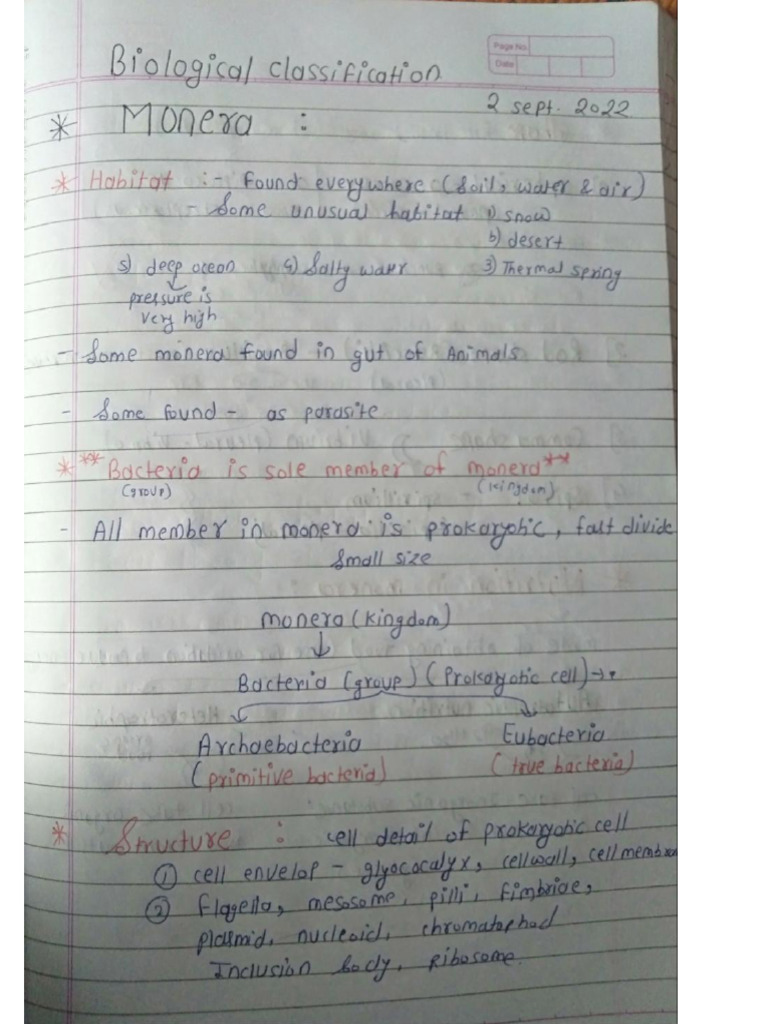 Page No.
Date
Biological classification
2 sept. 2022
* Monera :
* Habitat :- Found everywhere (Soil, water & air)
- Some unusual habitat 1) snow
b) desert
5) deep ocean 4) Salty water 3) Thermal spring
↓
pressure is
very high
- Some monera found in gut of Animals
- Some found - as parasite
* ** Bacteria is sole member of monera **
(group) (kingdom)
- All member in monera is prokaryotic, fast divide
Small size
monera (kingdom)
↓
Bacteria (group) (Prokaryotic cell) →
Archaebacteria Eubacteria
(primitive bacteria) (true bacteria)
* Structure : cell detail of prokaryotic cell
① cell envelop - glycocalyx, cell wall, cell membran
② flagella, mesosome, pilli, fimbriae,
plasmid, nucleoid, chromatophod
Inclusion body, Ribosome.